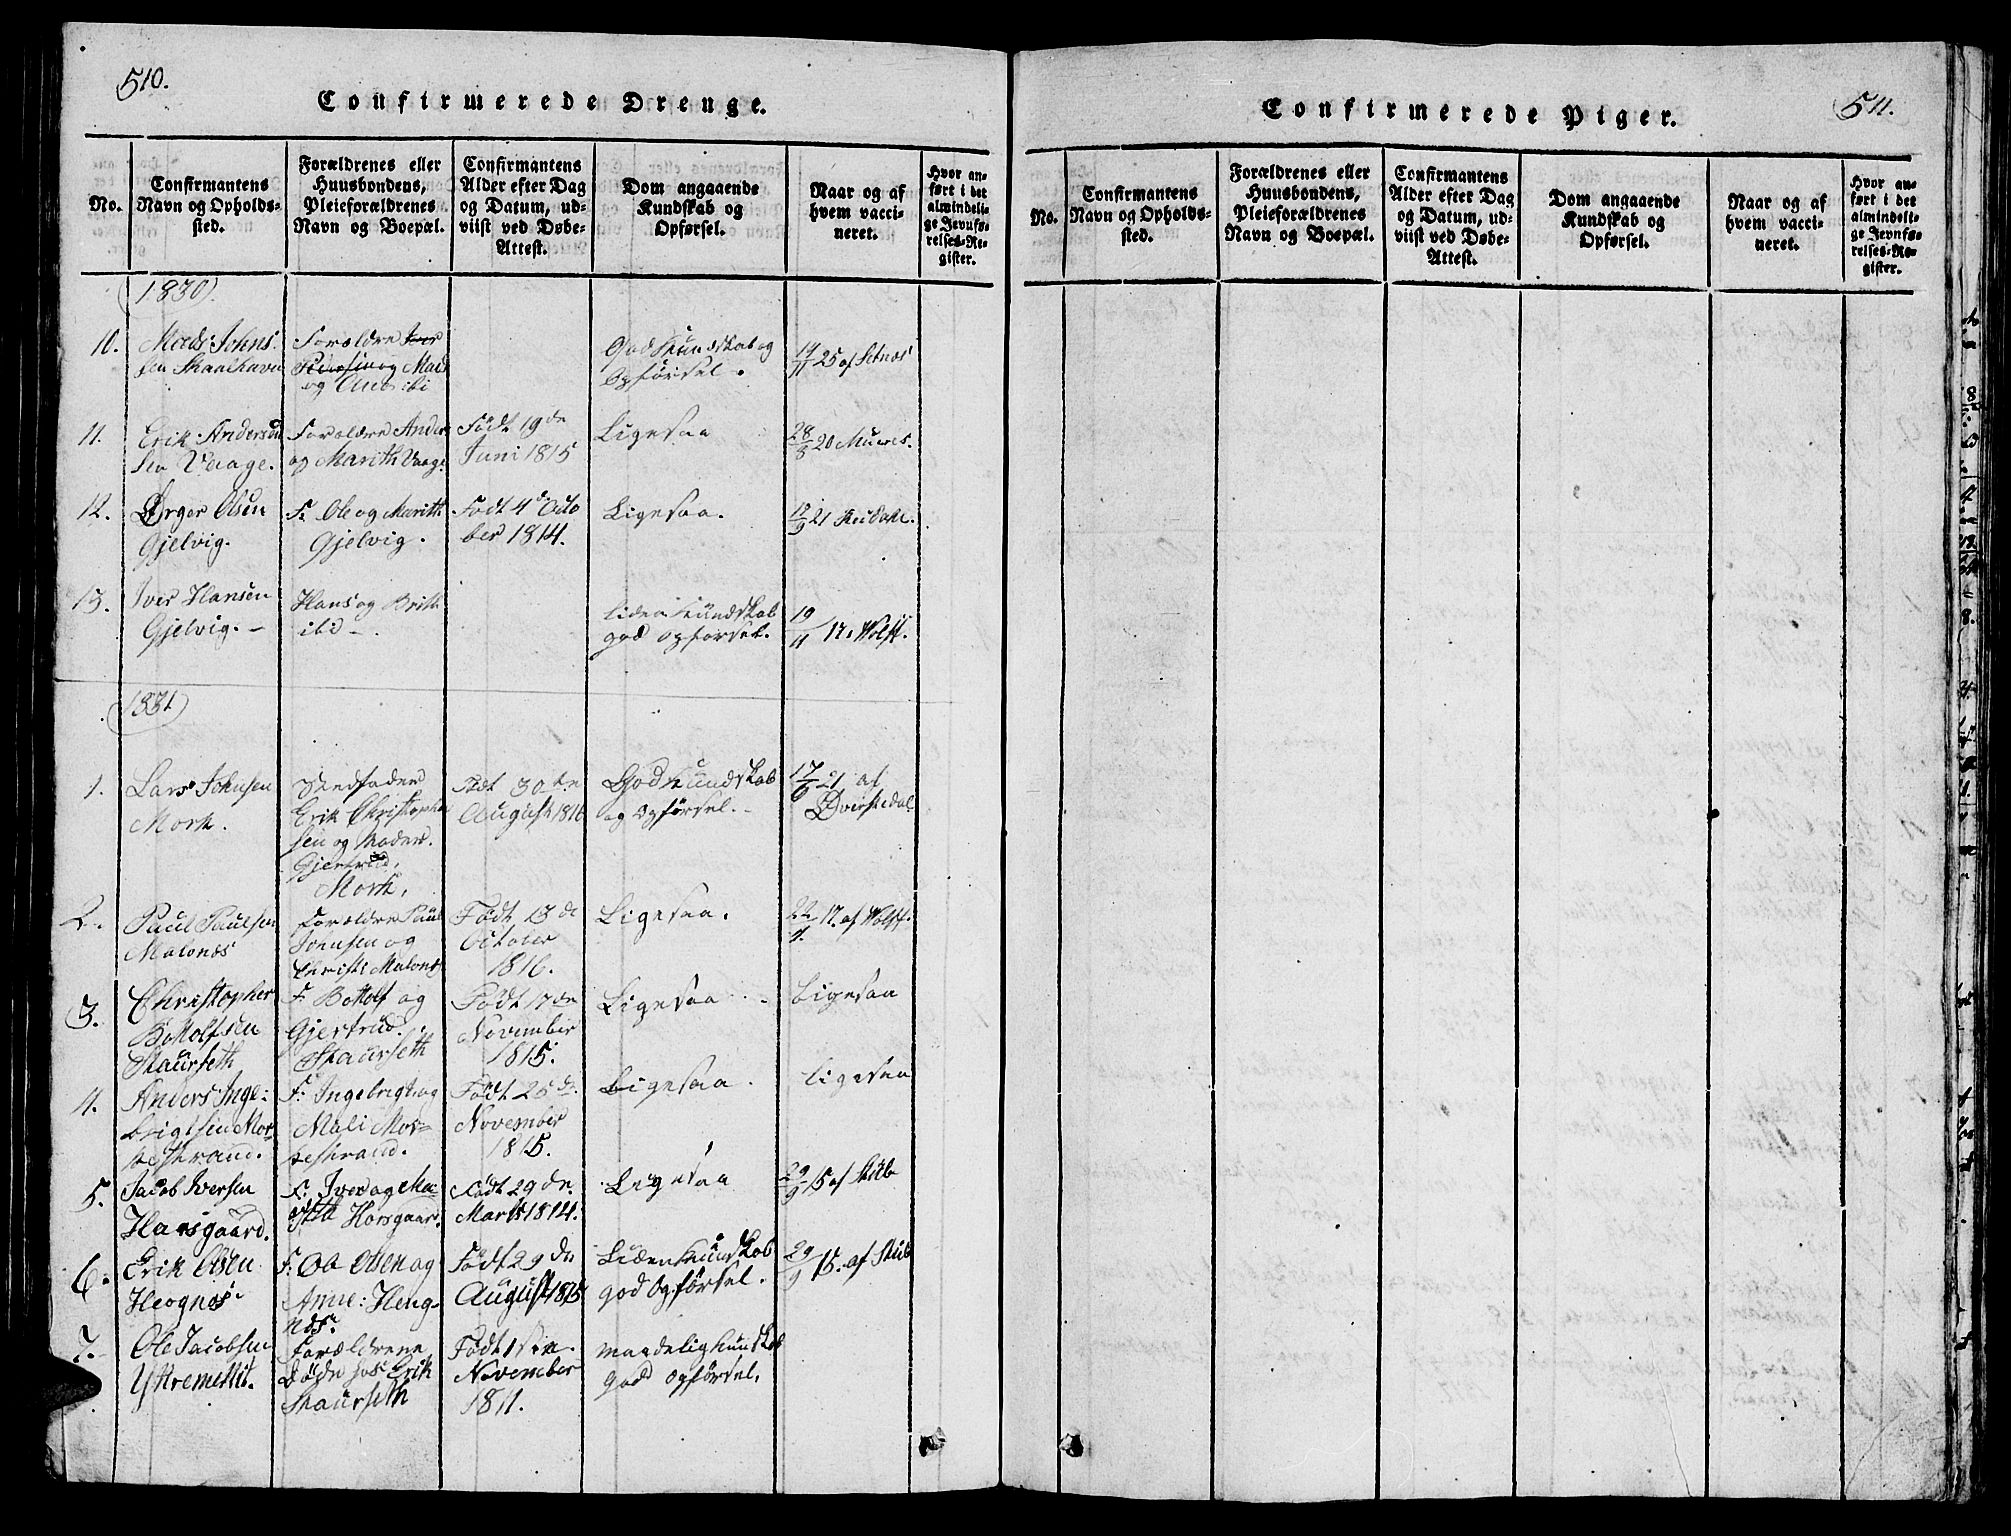 510.
Confirmerede Drenge.
No.
Confirmantens
Navn og Opholds-
sted.
Forældrenes eller
Huusbondens,
Pleieforældrenes
Navn og Boepæl.
Confirmantens
Alder efter Dag
og Datum, ud-
viist ved Døbe-
Attest.
Dom angaaende
Kundskab og
Opførsel.
Naar og af
hvem vacci-
neret.
Hvor an-
ført i det
almindeli-
ge Jevnfø-
relses-Re-
gister.
1830
10.
Mads Johns
sen
Forældre Iver
og Mari
God Kundskab og
Opførsel.
25 af
11.
Erik Anders
sen Vaage.
Forældre Anders
og Marith Vaage
Født 19de
Juni 1815
Ligesaa
28/8 20
12.
Ørger Olsen
Gjelvig.
F. Ole og Marith
Gjelvig.
Født 4de Octo
ber 1814.
Ligesaa.
21
13.
Iver Hansen
Gjelvig. -
Hans og Britt
ibid -
liden Kundskab
god opførsel.
19/11 17. Wolff.
1831
1.
Lars Johnsen
Mork.
Stedfader
Erik Christopher
sen og Moder
Gjertrud,
Mork,
Født 30te
August 1816
God Kundskab
og Opførsel -
17/6 21 af
Øverstedal
2.
Paul Paulsen
Malones
Forældre Paul
Joensen og
Christi Malones
Født 13de
October
1816.
Ligesaa.
22/4. 17. af Wolff.
3.
Christopher
Bottolfsen
Staurseth
F. Bottolf og
Gjertrud
Staurseth
Født 17de
November
1815.
Ligesaa
Ligesaa
4.
Anders Inge-
brigtsen Mor-
sestrand.
F. Ingebrigt og
Mali Mor-
sestrand.
Født 25de
November
1815.
Ligesaa.
Ligesaa
5.
Jacob Iversen
Harsgaard.
F. Iver og Ma-
Horsgaard.
Født 29de
Marts 1814.
Ligesaa
29/9 15 af Stub
6.
Erik Olsen
Heognes
F. Ole Olsen og
Anne Heng-
nes.
Født 29de
August 1815
Liden Kundskab
god Opførsel.
29/9 15. af Stub
7.
Ole Jacobsen
Yttremettet.
Forældrene
døde hos Erik
Staurseth
Født 1ste
November
1811.
maadelig Kundskab
god opførsel,
Confirmerede Piger.
511.
No.
Confirmantens
Navn og Opholds-
sted.
Forældrenes eller
Huusbondens,
Pleieforældrenes
Navn og Boepæl.
Confirmantens
Alder efter Dag
og Datum, ud-
viist ved Døbe-
Attest.
Dom angaaende
Kundskab og
Opførsel.
Naar og af
hvem vacci-
neret.
Hvor an-
ført i det
almindeli-
ge Jevnfø-
relses-Re-
gister.